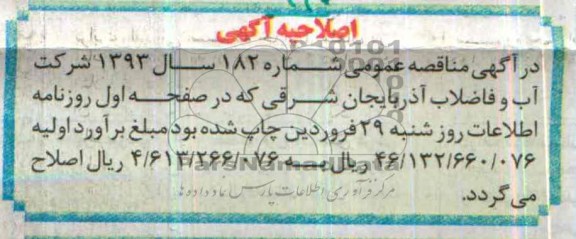 اصلاحیه آگهی
در آگهی مناقصه عمومی شماره ۱۸۲ سال ۱۳۹۳ شرکت
آب و فاضلاب آذربایجان شرقی که در صفحه اول روزنامه
اطلاعات روز شنبه ۲۹ فروردین چاپ شده بود مبلغ برآورد اولیه
۴۶/۱۳۲/۶۶۰/۰۷۶ ریال به ۴/۶۱۳/۲۶۶/۰۷۶ ریال اصلاح
ParsNamadData
مرکز فرآوری اطلاعات پارس نماد داده ها
می گردد.